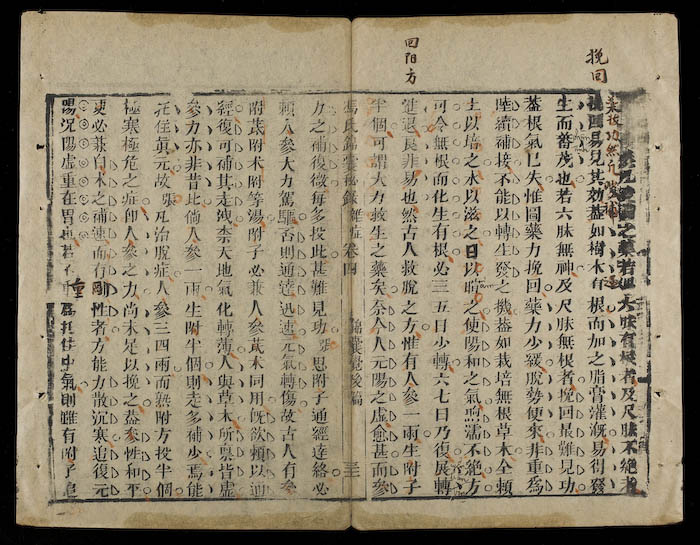 挽回
回阳方
之藥若 六脉有根者及尺脉不絕者
挽回易見其効蓋如樹木有根而加之脂膏灌溉易得發
生而蕃茂也若六脉無神及尺脉無根者挽回最難見功
蓋根氣已失惟圖藥力挽回藥力少緩脫勢便來非重爲
陸續補接不能以轉生發之機蓋如栽培無根草木全頼
土以培之水以滋之日以晞之使陽和之氣喣濡不絕方
可令無根而化生有根必三五日少轉六七日乃復展轉
進退良非易也然古人救脫之方惟有人參一兩生附子
半個可謂大力救生之藥矣奈今人元陽之虛愈甚而參
馮氏錦囊秘錄 雜症 卷四 錦囊覺後篇 三十
力之補復微每多投此甚難見功 思附子通經達絡必
頼人參大力駕馭否則通達迅速元氣轉傷故古人有參
附芪附术附等湯附子必兼人參芪术同用旣欲頼以通
經復可補其走洩柰天地氣化轉薄人與草木所稟皆虛
參力亦非昔比倘人參一兩生附半個則走多補少焉能
托住眞元故 凡治脫症人參三四兩而熟附方投半個
極寒極危之症仰人參之力尚未足以挽之蓋參性和平
更必兼白术之補速而有剛性者方能力散沉寒追復元
陽況陽虛重在胃 重 托住中氣則雖有附子追